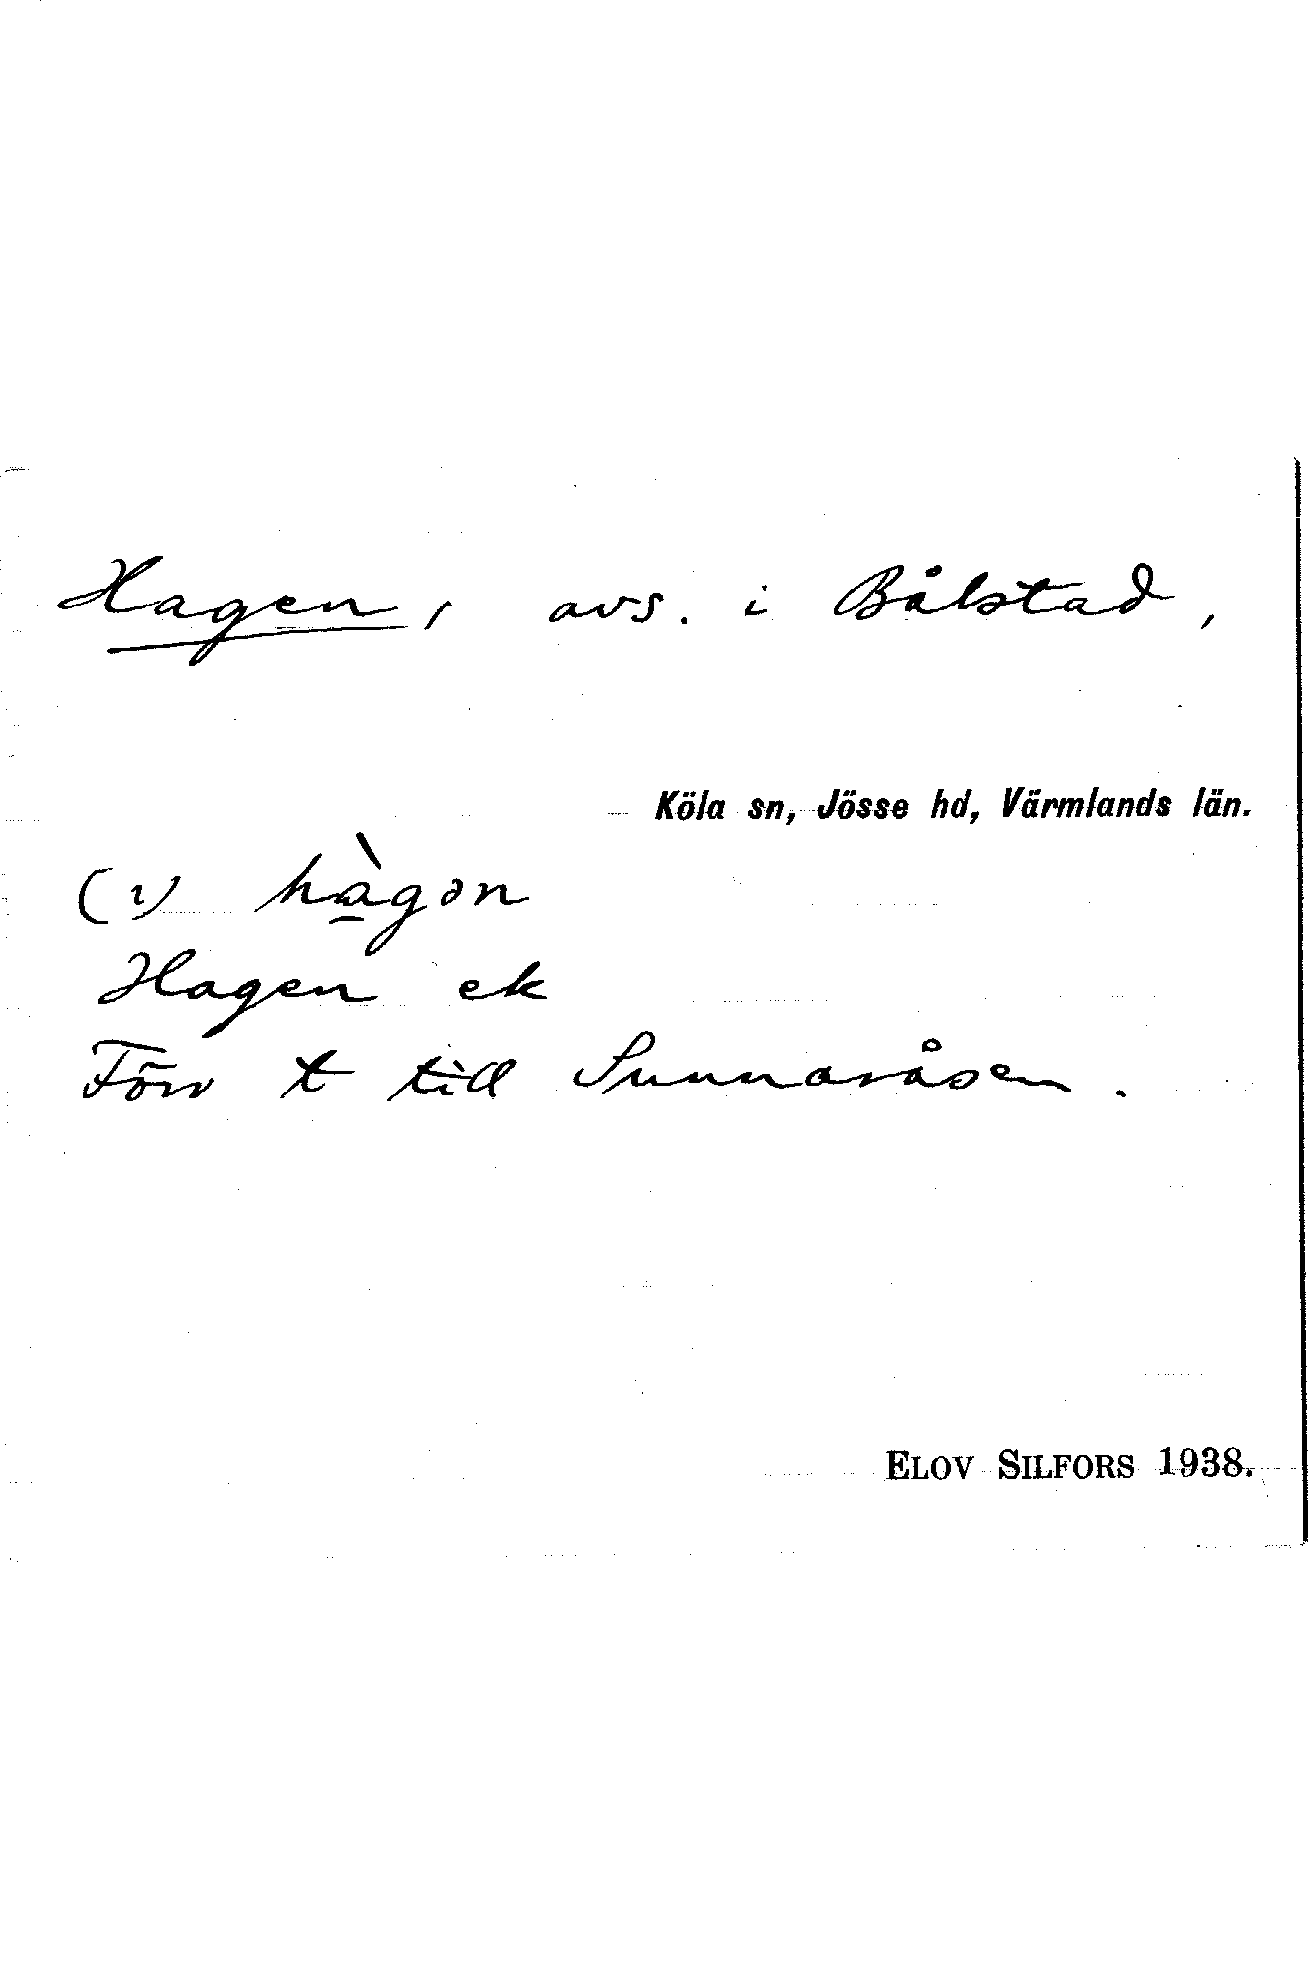 Hagen, avs. i Bålstad,
Köla sn, Jösse hd, Värmlands län.
(i) hàgən
Hagen ek
Förr t till Sunnanåsen.
ELOV SILFORS 1938.